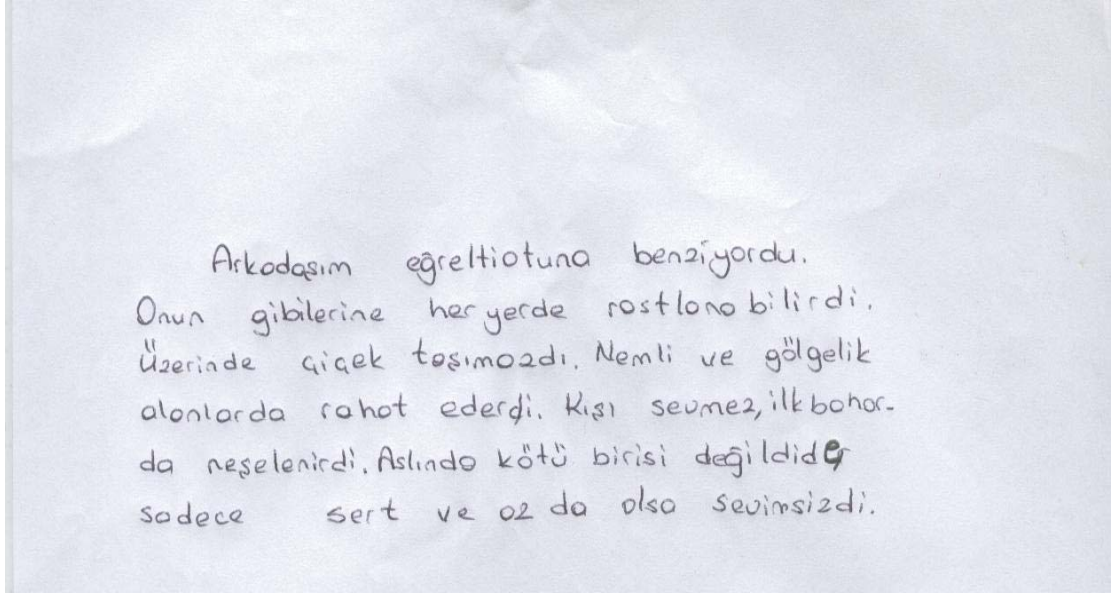 Arkadaşım eğreltiotuna benziyordu.
Onun gibilerine her yerde rastlanabilirdi.
Üzerinde çiçek taşımazdı. Nemli ve gölgelik
alanlarda rahat ederdi. Kışı sevmez, ilkbahar-
da neşelenirdi. Aslında kötü birisi değildide
sadece sert ve az da olsa sevimsizdi.